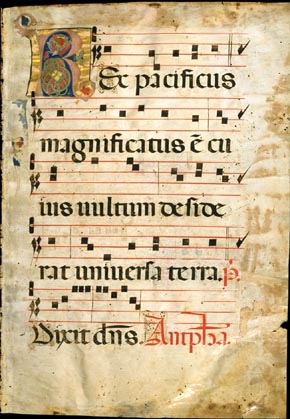 Rex pacificus
magnificatus ē cu
ius uultum deside
rat uniuersa terra. p̄.
Dixit dn̄s. Antpha